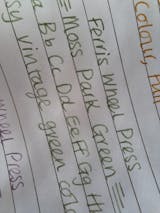 Colour, Ful
Ferris Wheel Press
= Moss Park Green =
a Bb Cc Dd Ee Ff Gg H
sy vintage green colo
Wheel Press